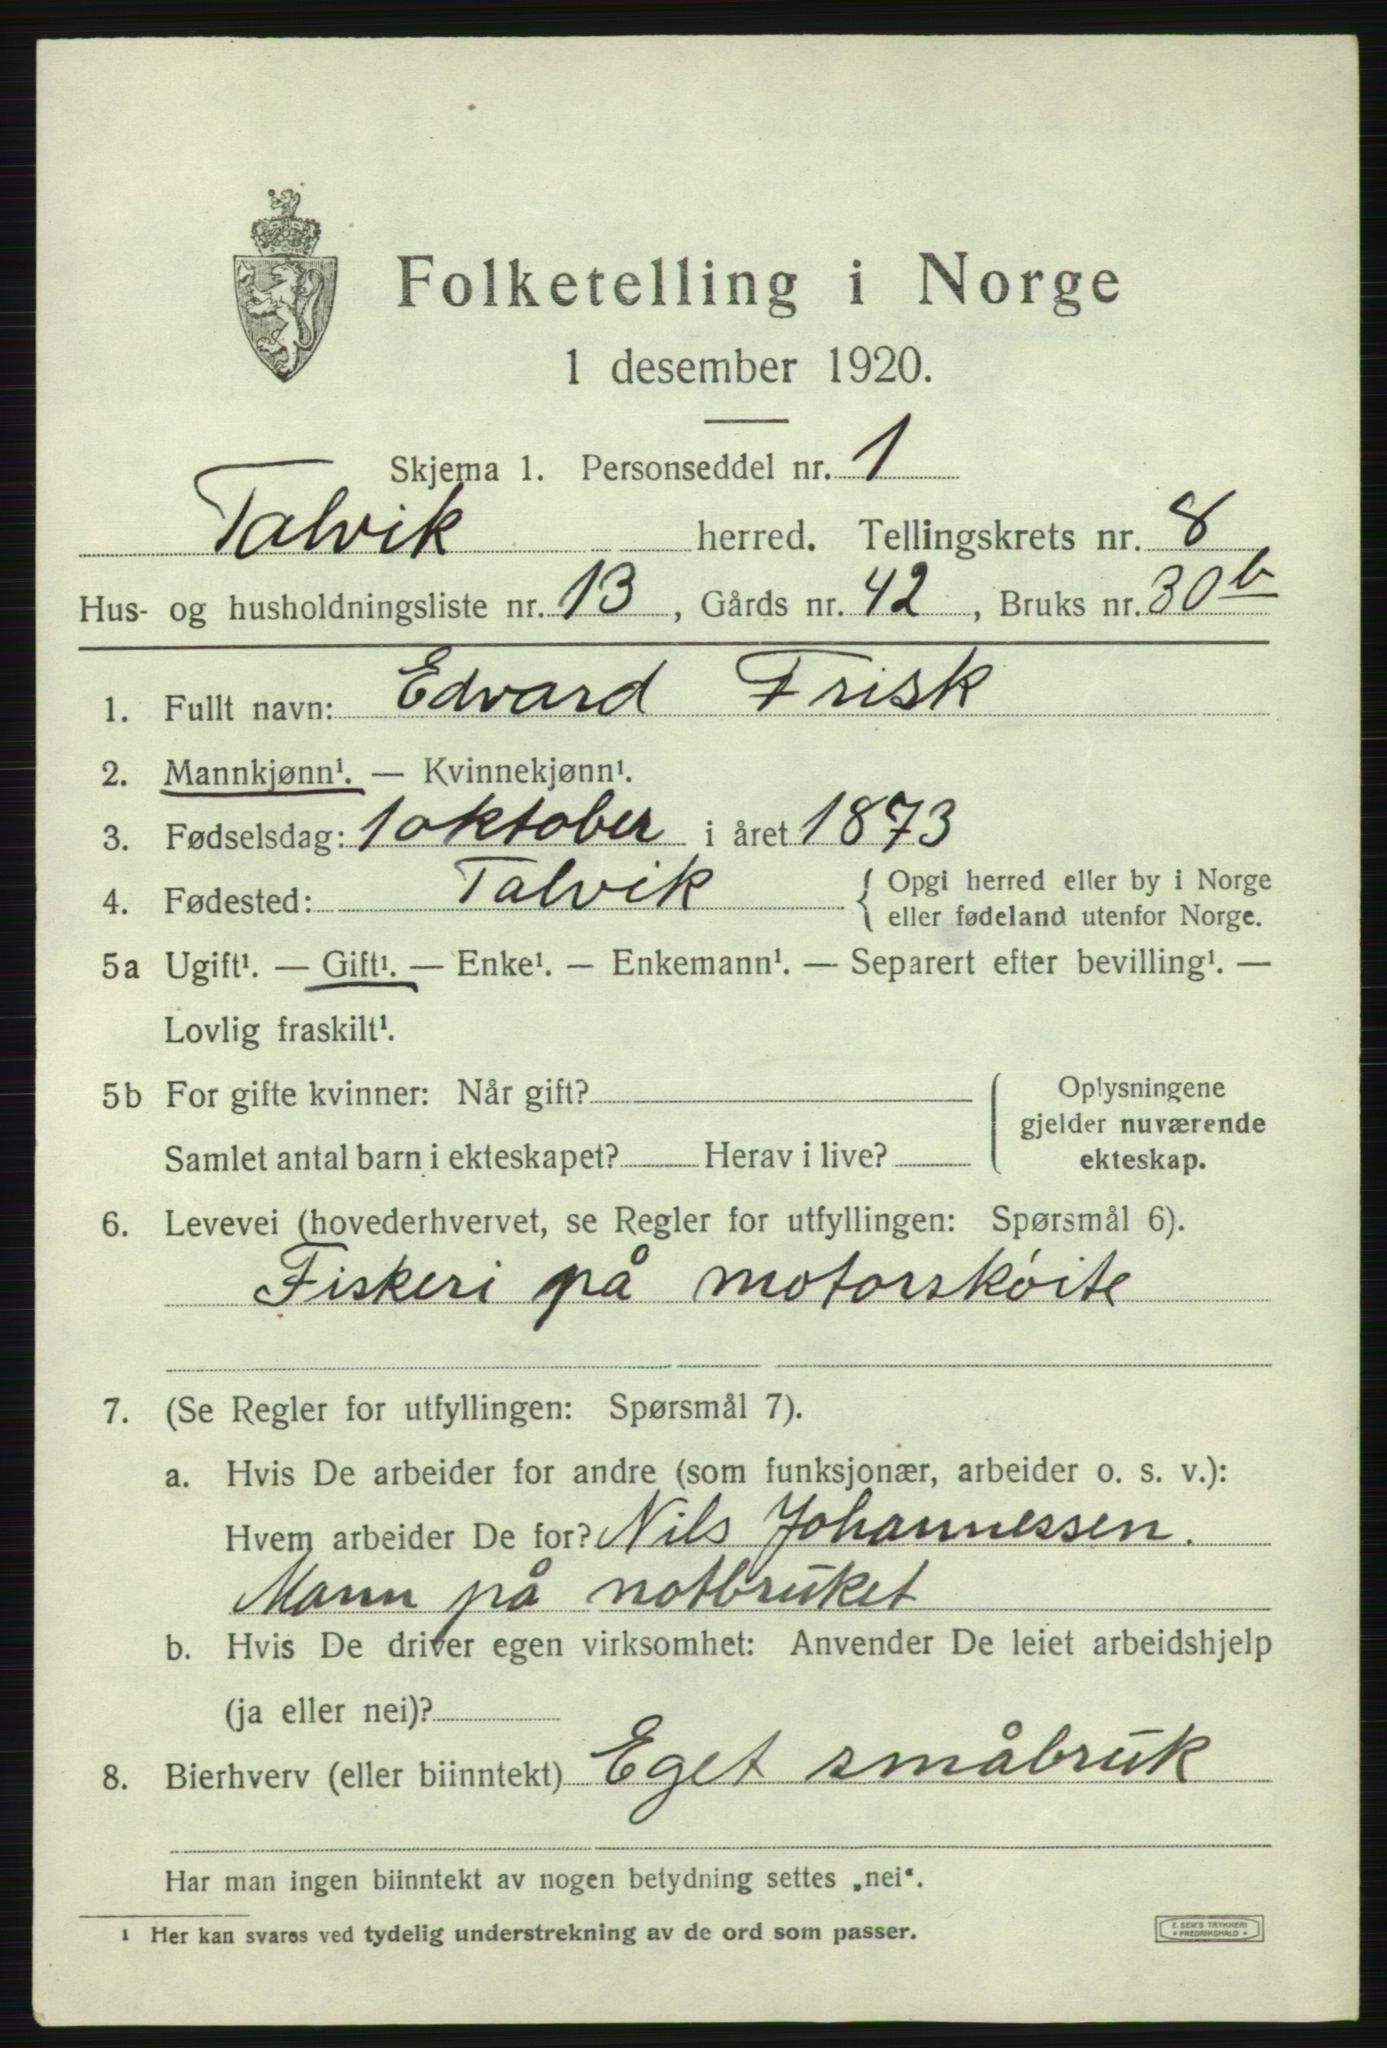 Folketelling i Norge
1 desember 1920.
Skjema 1. Personseddel nr. 1
Talvik herred. Tellingskrets nr. 8
Hus- og husholdningsliste nr. 13, Gårds nr. 42, Bruks nr. 30 b
1. Fullt navn: Edvard Frisk
2. Mannkjønn¹. — Kvinnekjønn¹.
3. Fødselsdag: 1 oktober i året 1873
4. Fødested: Talvik { Opgi herred eller by i Norge
eller fødeland utenfor Norge.
5a Ugift¹. — Gift¹. — Enke¹. — Enkemann¹. — Separert efter bevilling¹. —
Lovlig fraskilt¹.
5b For gifte kvinner: Når gift?
Samlet antal barn i ekteskapet? Herav i live?
Oplysningene
gjelder nuværende
ekteskap.
6. Levevei (hovederhvervet, se Regler for utfyllingen: Spørsmål 6).
Fiskeri på motorskøite
7. (Se Regler for utfyllingen: Spørsmål 7).
a. Hvis De arbeider for andre (som funksjonær, arbeider o. s. v.):
Hvem arbeider De for? Nils Johannessen.
Mann på notbruket
b. Hvis De driver egen virksomhet: Anvender De leiet arbeidshjelp
(ja eller nei)?
8. Bierhverv (eller biinntekt) Eget småbruk
Har man ingen biinntekt av nogen betydning settes „nei“.
¹ Her kan svares ved tydelig understrekning av de ord som passer.
E. SEM'S TRYKKERI
* FREDRIKSHALD *